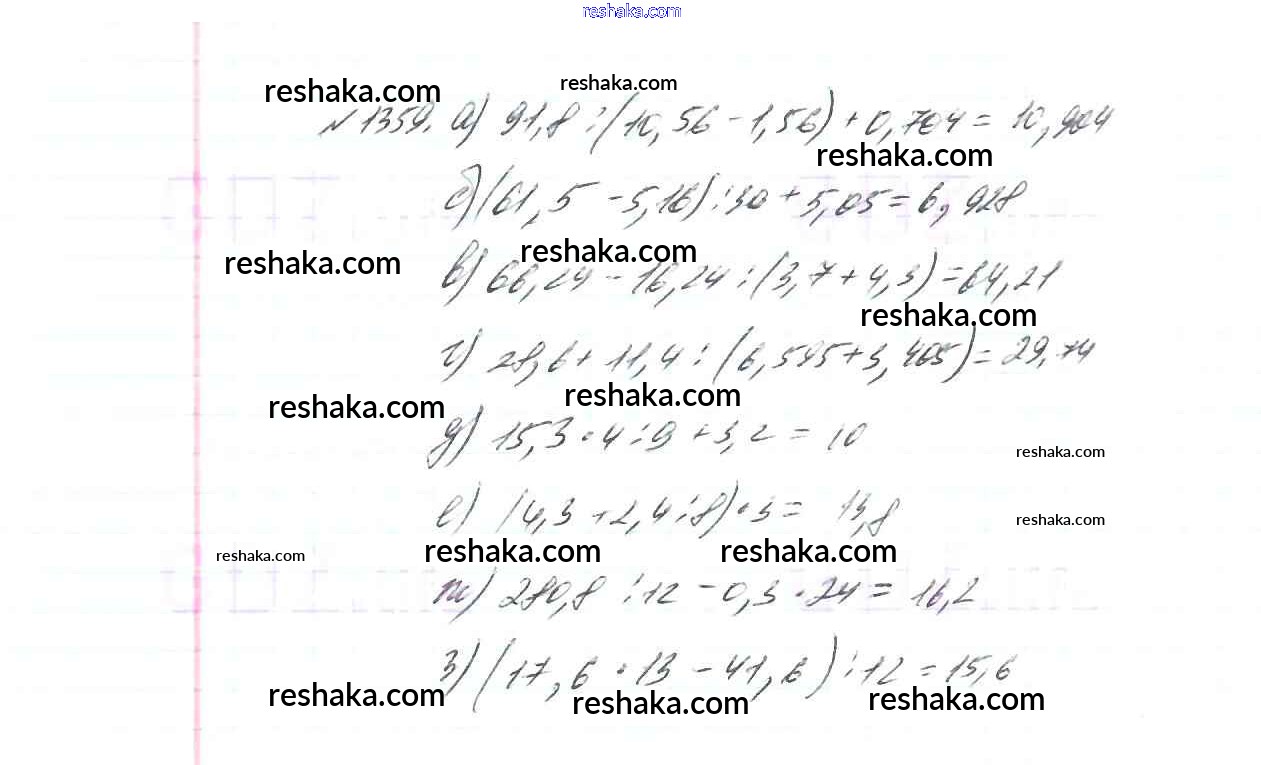 reshaka.com
reshaka.com reshaka.com
№1359. а) 91,8 : (10,56 - 1,56) + 0,704 = 10,904
reshaka.com
б) (61,5 - 5,16) : 30 + 5,05 = 6,928
reshaka.com reshaka.com
в) 66,24 - 16,24 : (3,7 + 4,3) = 64,21
reshaka.com
г) 28,6 + 11,4 : (6,595 + 3,405) = 29,74
reshaka.com reshaka.com
д) 15,3 · 4 : 9 + 3,2 = 10
reshaka.com
е) (4,3 + 2,4 : 8) · 3 = 13,8
reshaka.com
reshaka.com reshaka.com reshaka.com
ж) 280,8 : 12 - 0,3 · 24 = 16,2
з) (17,6 · 13 - 41,6) : 12 = 15,6
reshaka.com reshaka.com reshaka.com